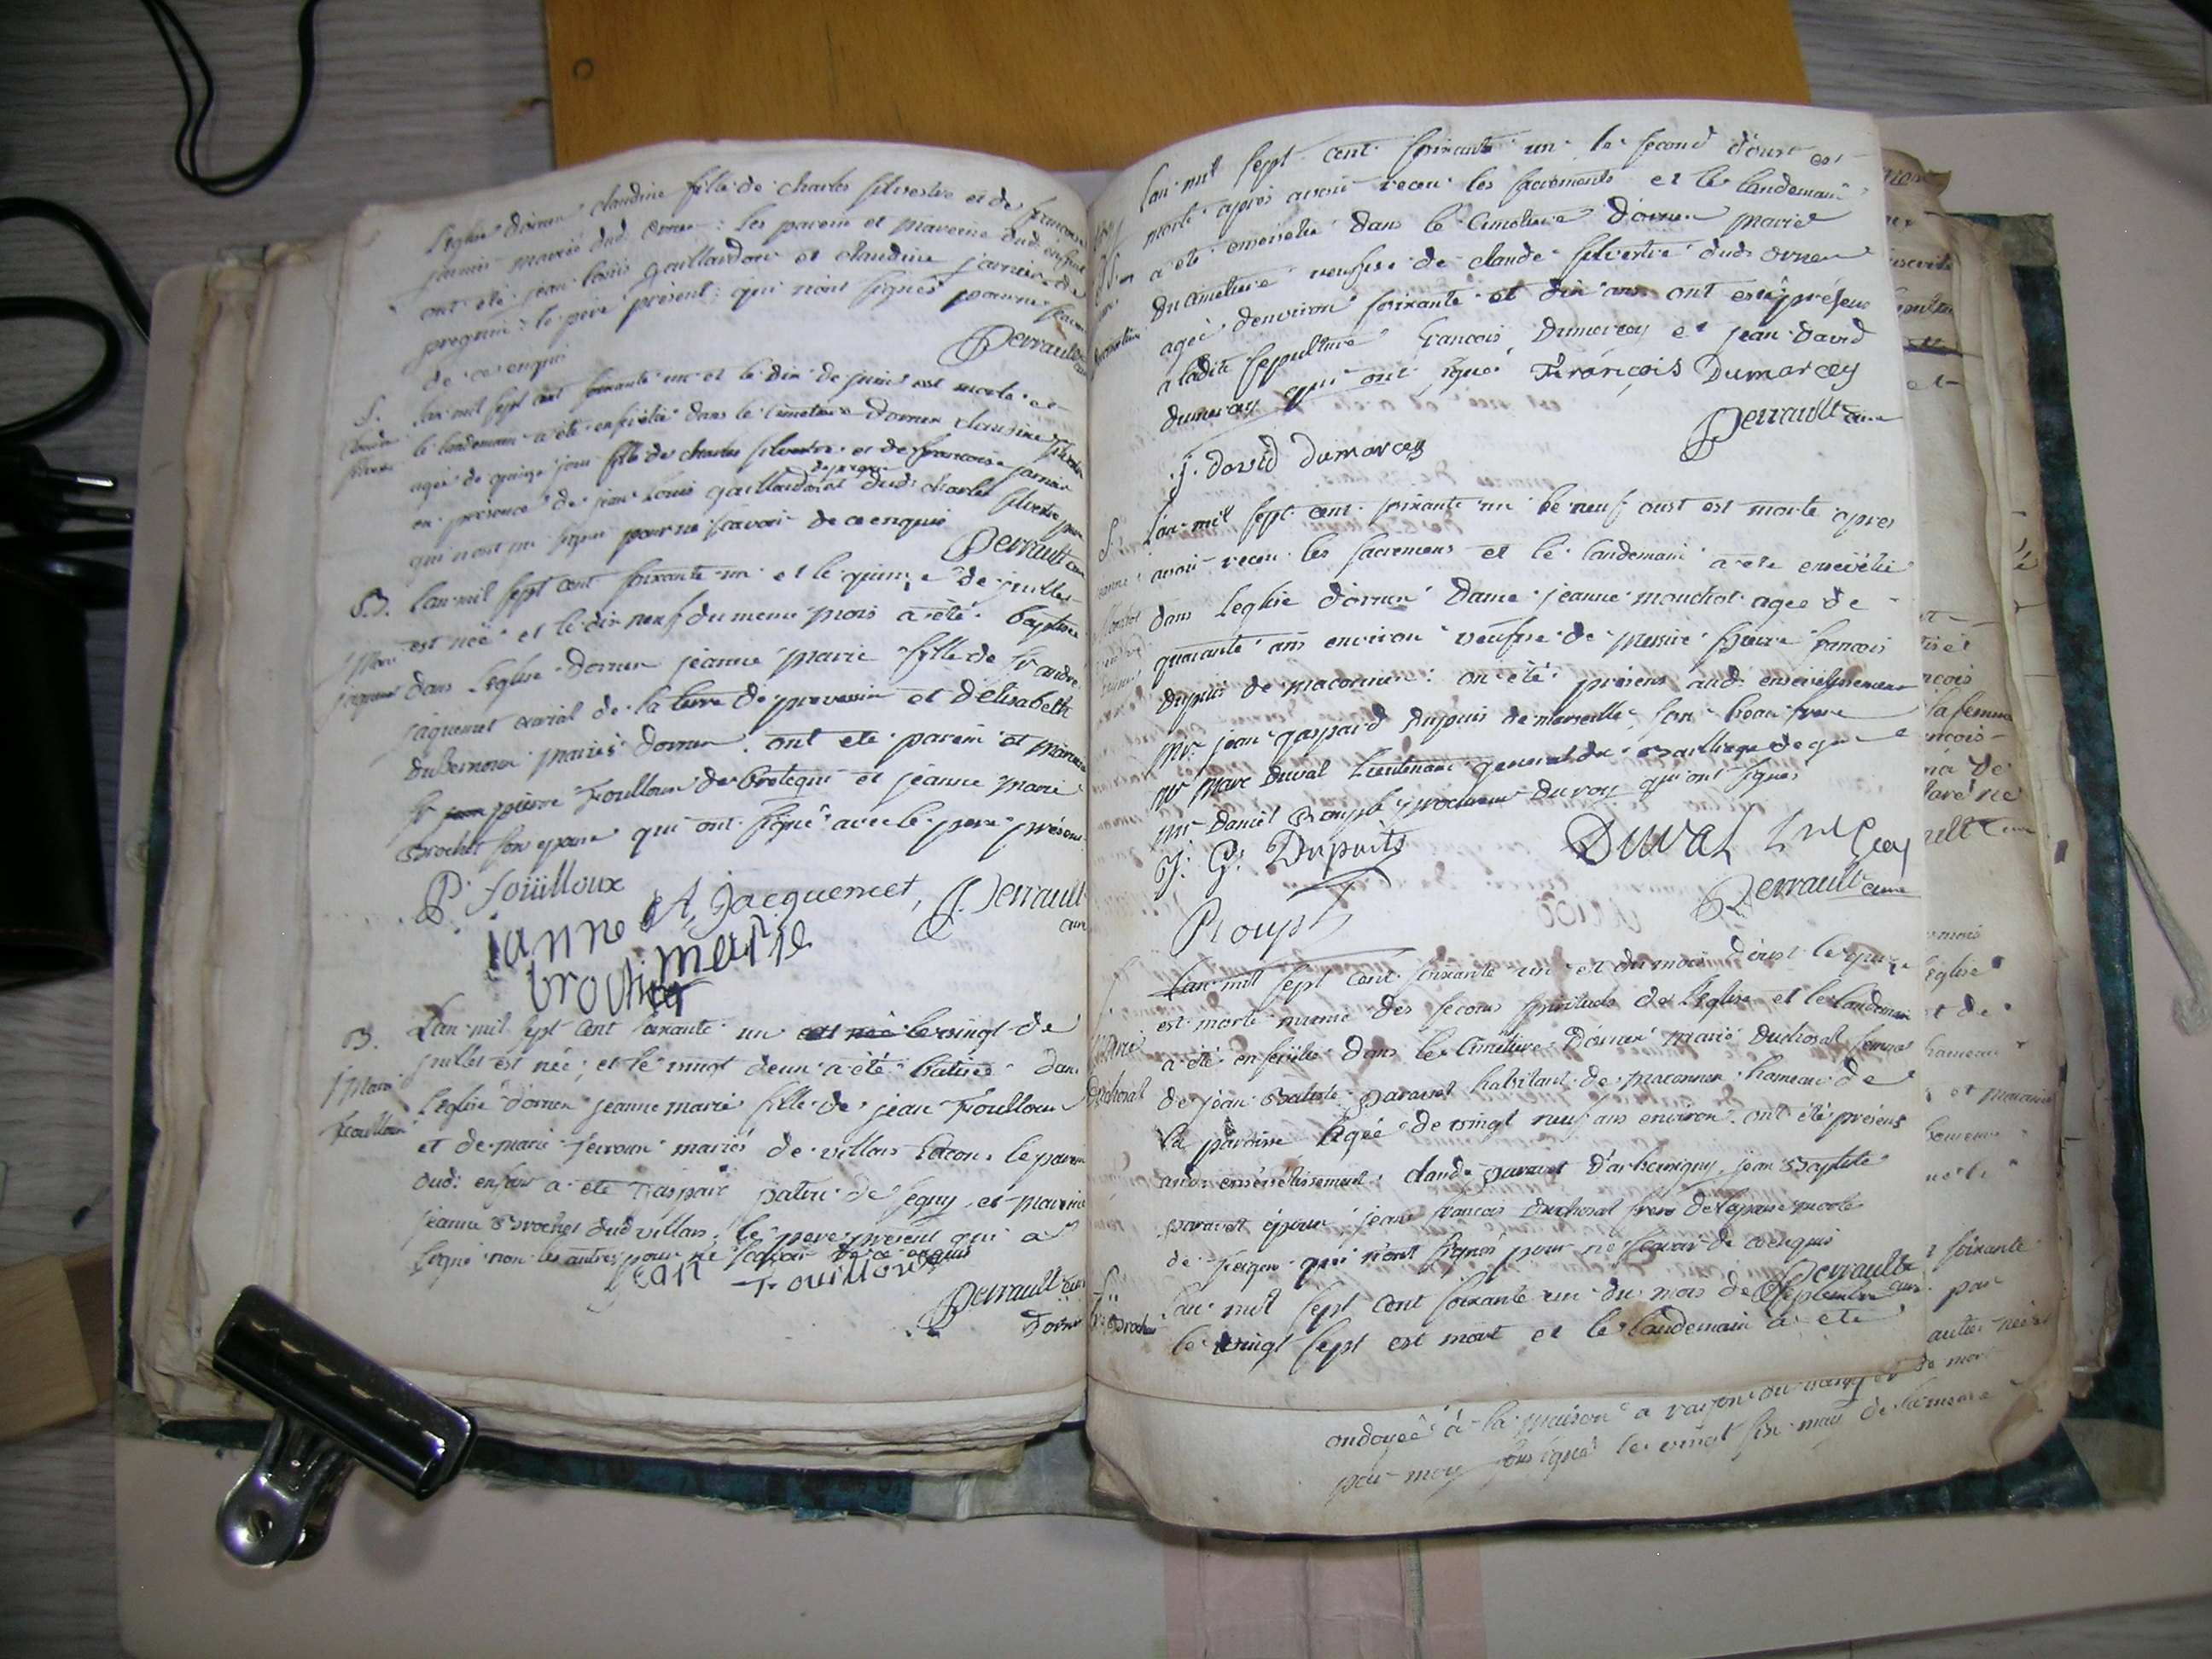 Leglise dornex claudine fille de charles silvestre et de francoise
jarnier mariés dud. ornex: les parein et mareine dud. enfant
ont été jean louis gaillardon et claudine jarnier de
pregnin: le père présent: qui n'ont signés pour ne scavoir
de ce enquis
Perrault
S. Lan mil sept cent soixante un et le dix de juin est morte et
le landemain a été ensevelie dans le cimetiere dornex claudine
agée de quinze jour fille de charles silvestre et de francoise jarnier
en présence de jean louis gaillardon et dud. charles silvestre
qui n'ont signé pour ne scavoir de ce enquis
Perrault
B. Lan mil sept cent soixante un et le quinze de juillet
est née et le dix neuf du meme mois a été baptisée
dans Leglise dornex jeanne marie fille de Sr andré
jaquemet curial de la terre de prevessin et D'elisabeth
mariés dornex. ont été parein et mareine
Sr pierre Foulloux de bretegni et jeanne marie
Brochet son epouse qui ont signé avec le pere présent
P. foüilloux
A. Jacquemet, Perrault
ianne marie
brochet
B. Lan mil sept cent soixante un est née le vingt de
juillet est née; et le vingt deux a été batisée dans
jmarie
Leglise dornex jeanne marie fille de jean Foulloux
Foulloux
et de marie mariés de villars le parein
dud. enfant a été gaspard de segny et mareine
jeanne Brochet dud villars, le pere présent qui a
signé non les autres pour ne scavoir de ce enquis
jean Fouilloux
Perrault
Lan mil sept cent soixante un le second d'oust est
morte après avoir receu les sacrements et le landemain
a été ensevelie dans le cimetiere d'ornex marie
Ducimetiere veufve de claude silvestre dud. ornex
agée d'environ soixante et dix ans ont été présens
a ladite sepulture François Dumarcey et jean David
dumarcey qui ont signé François Dumarcey
Perrault curé
j. david dumarcey
S. Lan mil sept cent soixante un le neuf oust est morte apres
avoir receu les sacremens et le landemain a été ensevélie
dans Leglise d'ornex Dame jeanne mouchot agée de
quarante ans environ veufve de messire pierre francois
dupuis de maconnex: on été présens aud. ensevelissement
Mr. jean gaspard dupuis de marseille son beau frere
mr Marc Duval Lieutenant general du Bailliage de gex
mr Daniel Rouph procureur du roy qui ont signés
J. G. Dupuits
Duval
Perrault curé
Rouph
Lan mil sept cent soixante un et du mois d'oust le quinze
est morte munie des secours spirituels de L'eglise et le landemain
a été ensevelie dans le cimetiere d'ornex marie Duchosal femme
Marie
Duchosal
de jean Batiste Paravet habitant de maconnex hameau de
la paroisse agée de vingt neuf ans environ. ont été présens
aud. ensevélissement: claude paravet jean Baptiste
paravet époux jean francois Duchosal frere de lepouse morte
de qui n'ont signés pour ne scavoir de ce enquis
Perrault
curé
Lan mil sept cent soixante un du mois de Septembre
le vingt sept est mort et le landemain a été
ondoyée à la maison a raison du danger de mort
par moy soussigné le vingt six may de la mesme